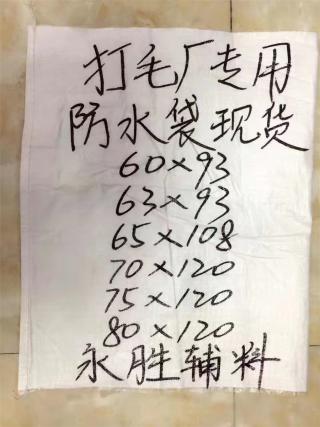 打毛厂专用
防水袋现货
60×93
63×93
65×108
70×120
75×120
80×120
永胜辅料